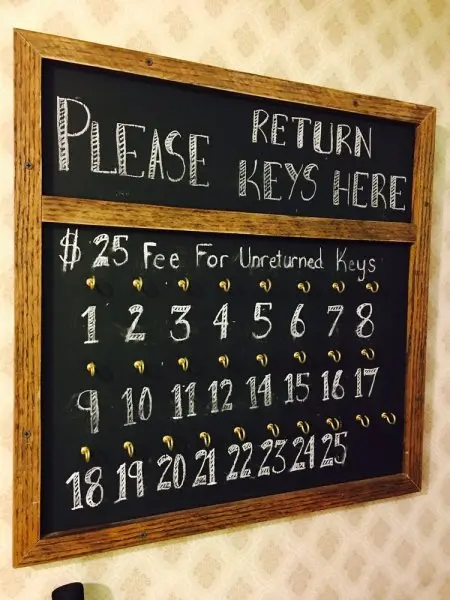 PLEASE RETURN
KEYS HERE
$25 Fee For Unreturned Keys
1 2 3 4 5 6 7 8
9 10 11 12 14 15 16 17
18 19 20 21 22 23 24 25